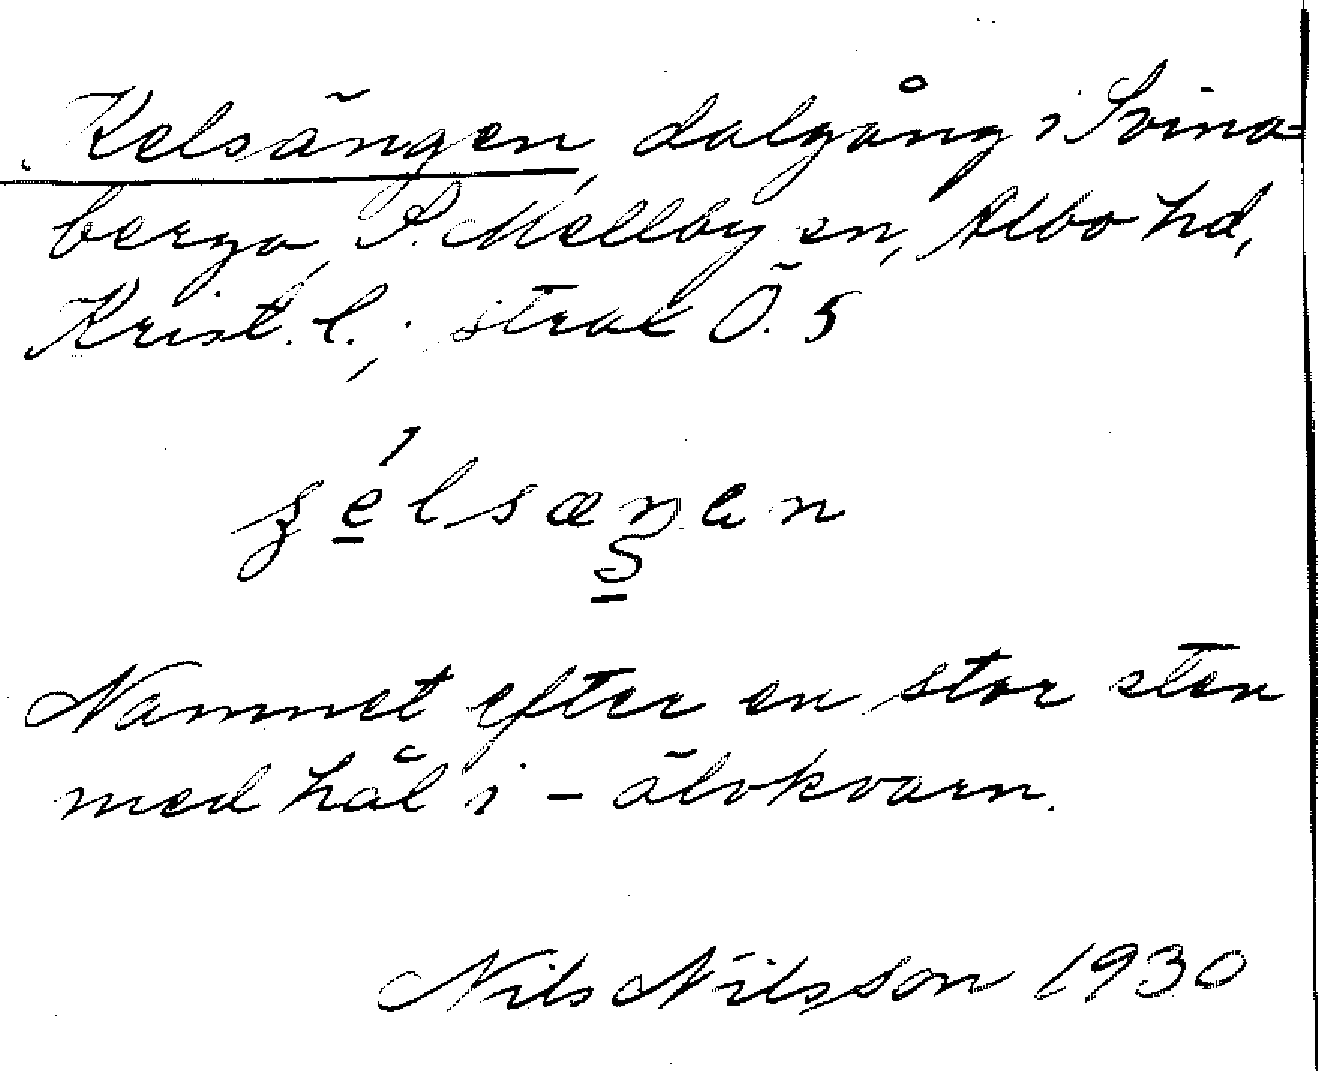 Kelsängen, dalgång i Svina=
berga, S. Mellby sn, Albo hd,
Krist. l.; strax Ö. 5
Namnet efter en stor sten
med hål i - älvkvarn.
Nils Nilsson 1930